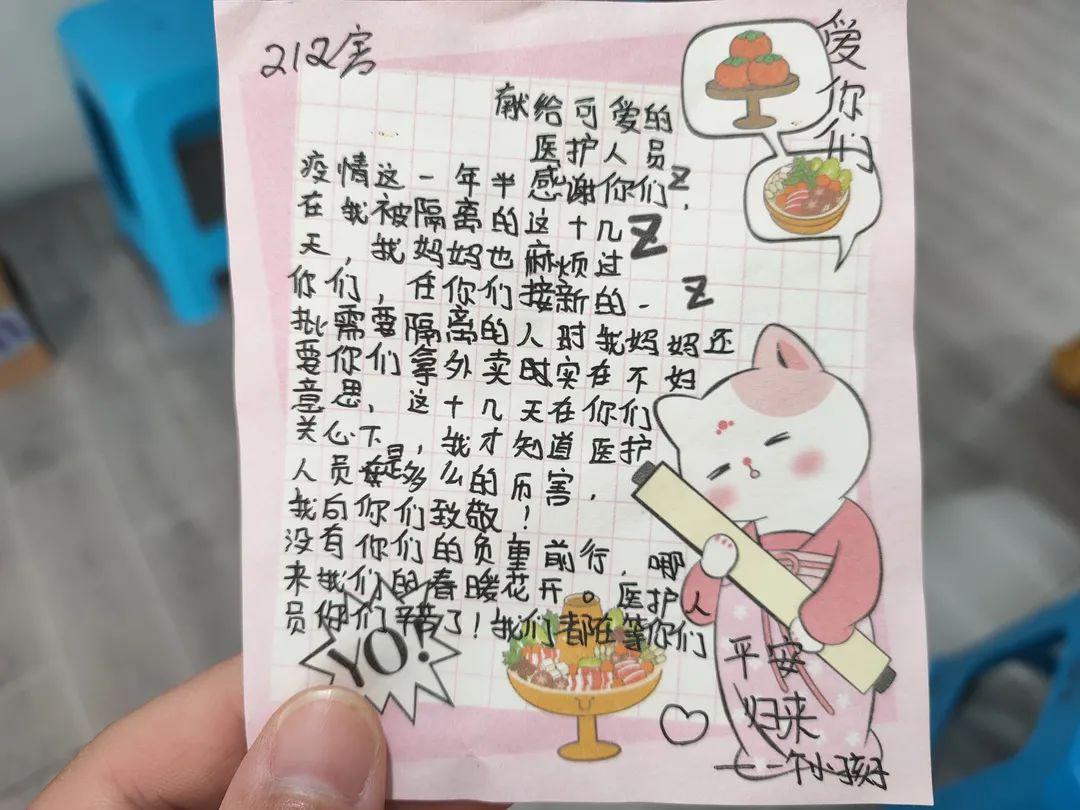 212害
献给可爱的
医护人员
疫情这一年半感谢你们,
在我被隔离的这十几
天,我妈妈也麻烦过
你们,在你们接新的一
批需要隔离的人时我妈妈还
要你们拿外卖时实在不好
意思,这十几天在你们
关心下,我才知道医护
人员是多么的历害,
我向你们致敬!
没有你们的负重前行,哪
来我们的春暖花开。医护人
员你们辛苦了!我们都在等你们
平安
归来
——一个小孩子
爱你们
Z
Z
Z
YO!